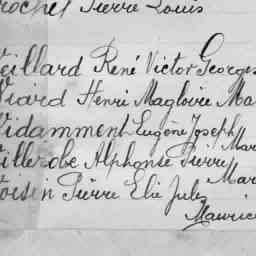 rochet Pierre Louis
Veillard René Victor Georges
Viard Henri Magloire Ma
Vidamment Eugène Joseph
Mar
Villerobe Alphonse Pierre
Mar
Voisin Pierre Elie Jules
Maurice